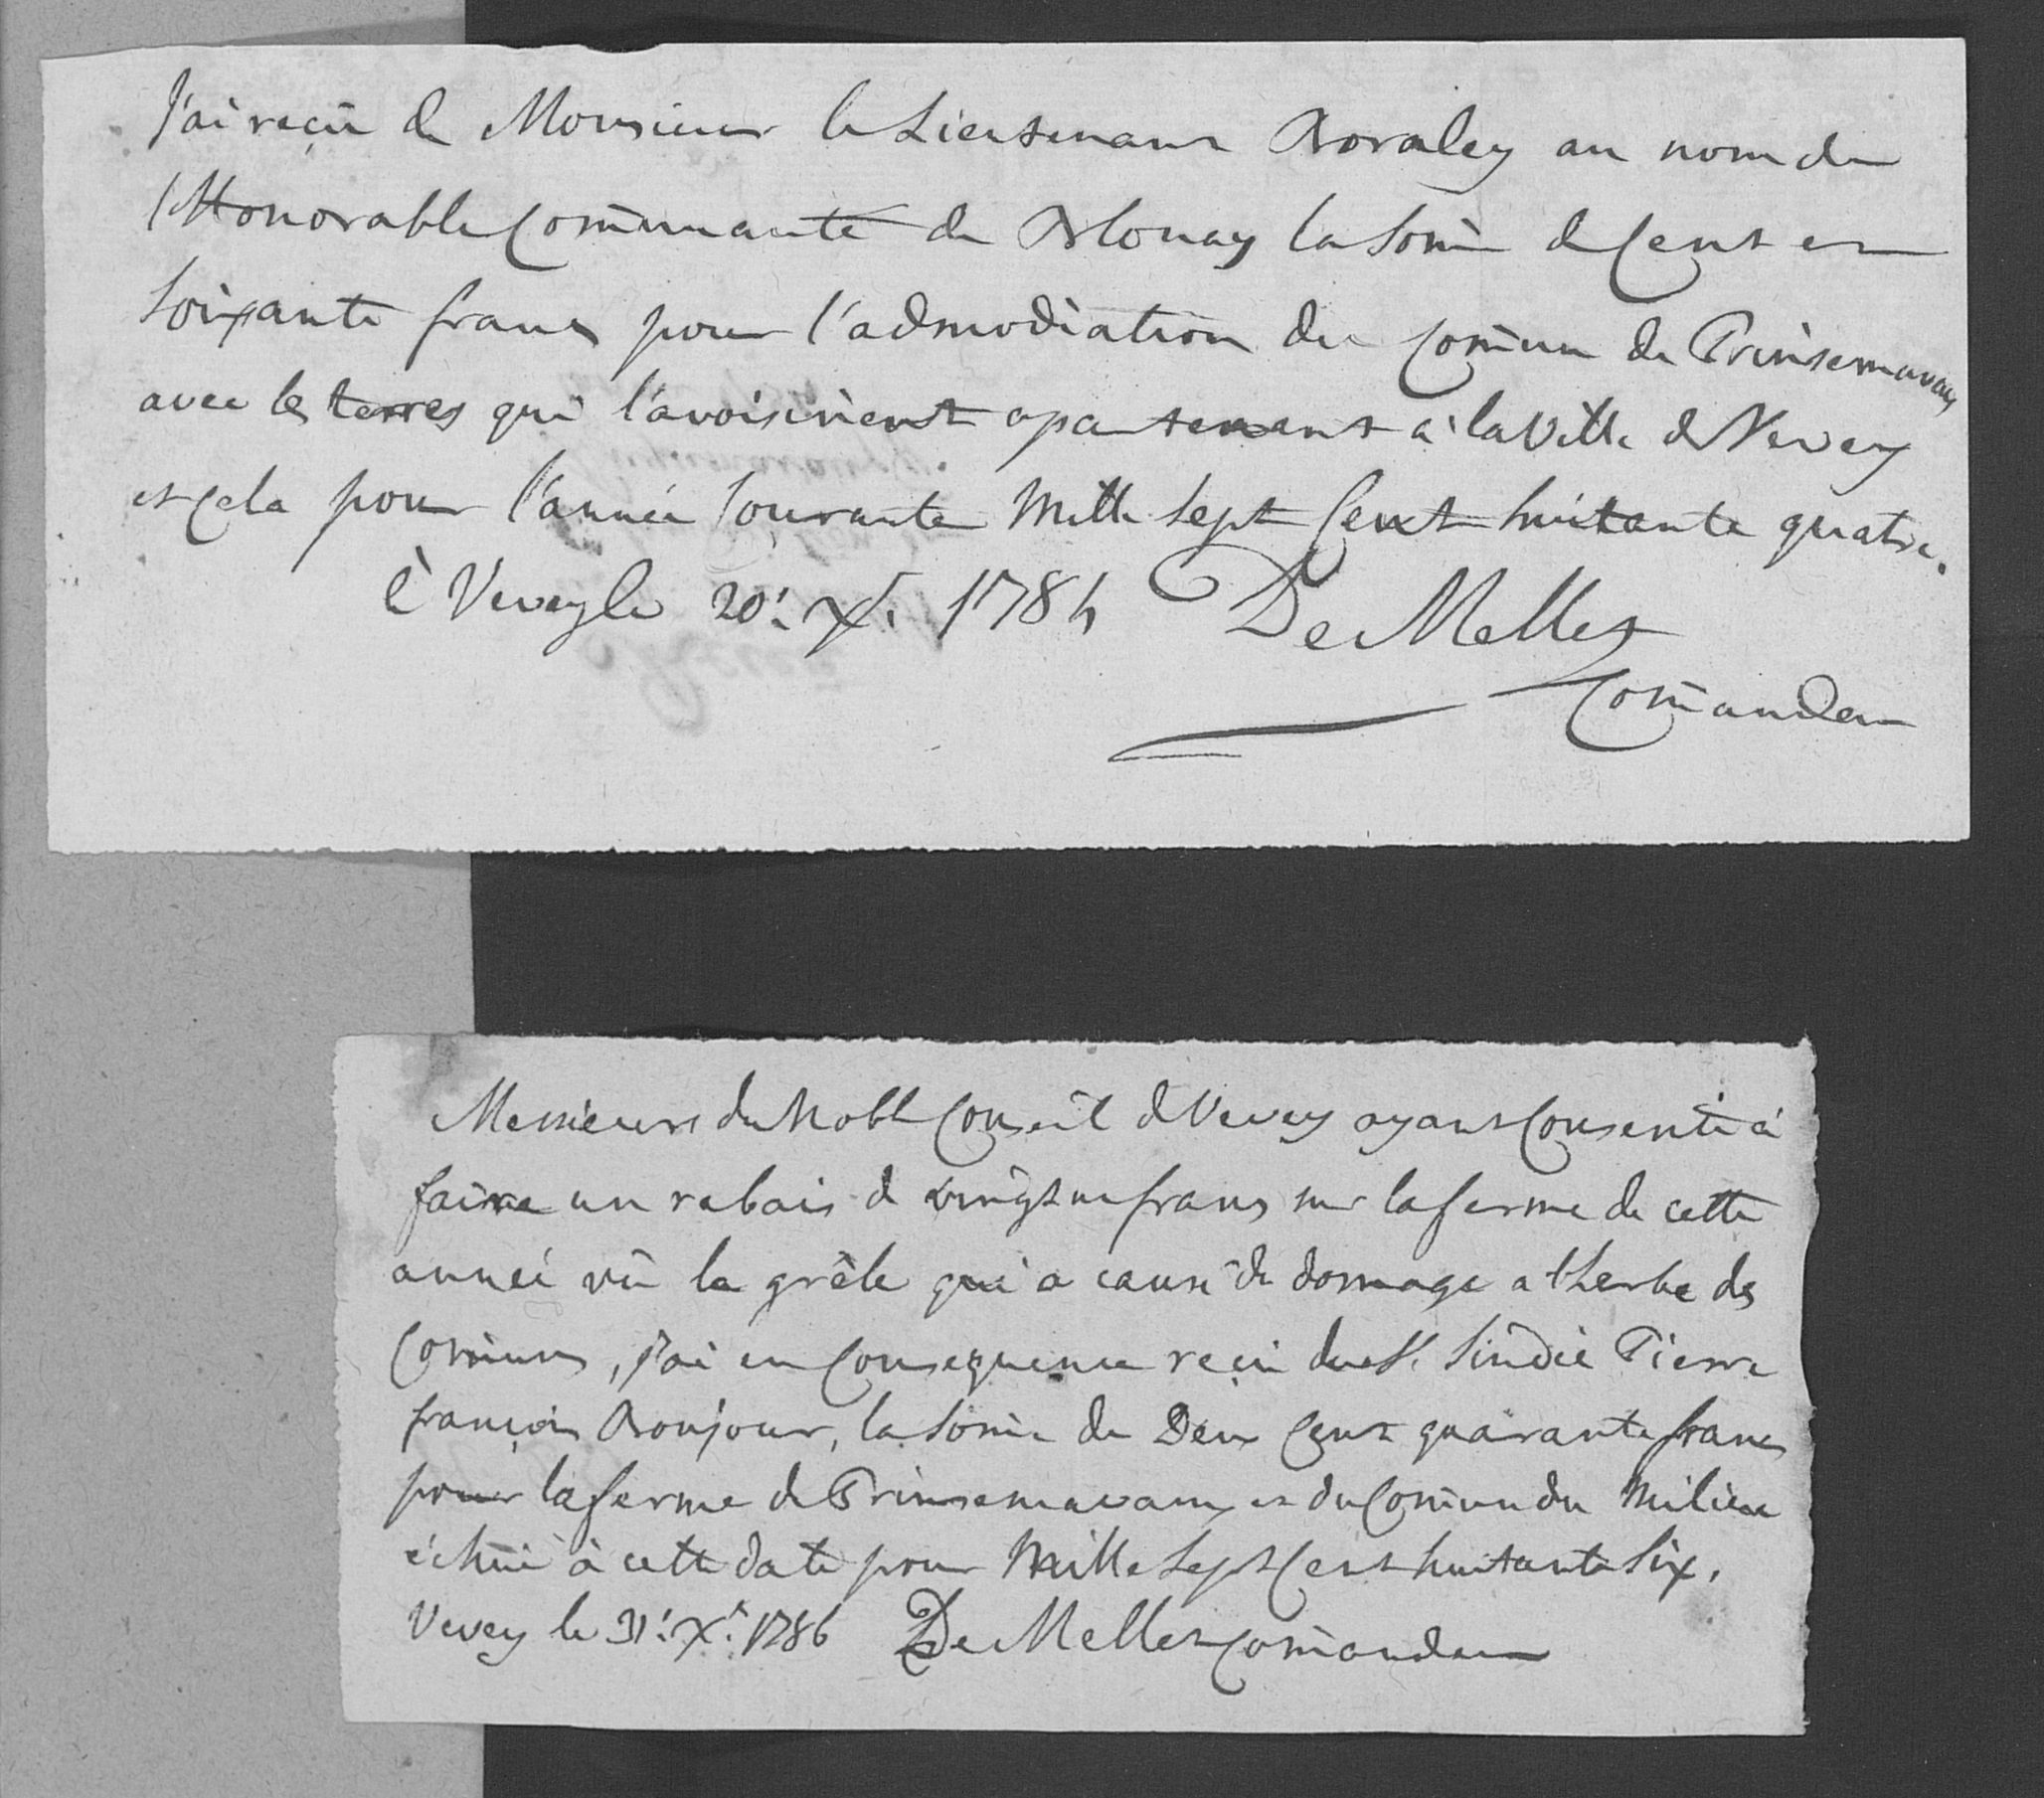 J'ai reçû de Monsieur le Lieutenant Boraley au nom de
l'Honorable Com̄unauté de Blonay la Som̄e de Cent et
Soixante francs pour l'admodiation du Com̄un de Prinsemavaux
avec les terres qui l'avoisinent apartenants à la Ville de Vevey
et Cela pour l'année Courante Mille Sept Cent huitante quatre.
à Vevey le 20: Xr. 1784 De Mellet
Com̄andeur
Messieurs du Noble Conseil de Vevey ayant Consenti à
faire un rabais de vingt un francs sur la ferme de cette
année vû la grêle qui a causé du domage a l'herbe des
Com̄uns, j'ai en Consequence reçû du Sr. Sindic Pierre
françois Bonjour, la Som̄e de Deux Cent quarante francs
pour la ferme de Prinsemavaux et du Com̄un du Milieu
échüe à cette date pour Mille Sept Cent huitante Six.
Vevey le 31: Xr. 1786 De Mellet Com̄andeur